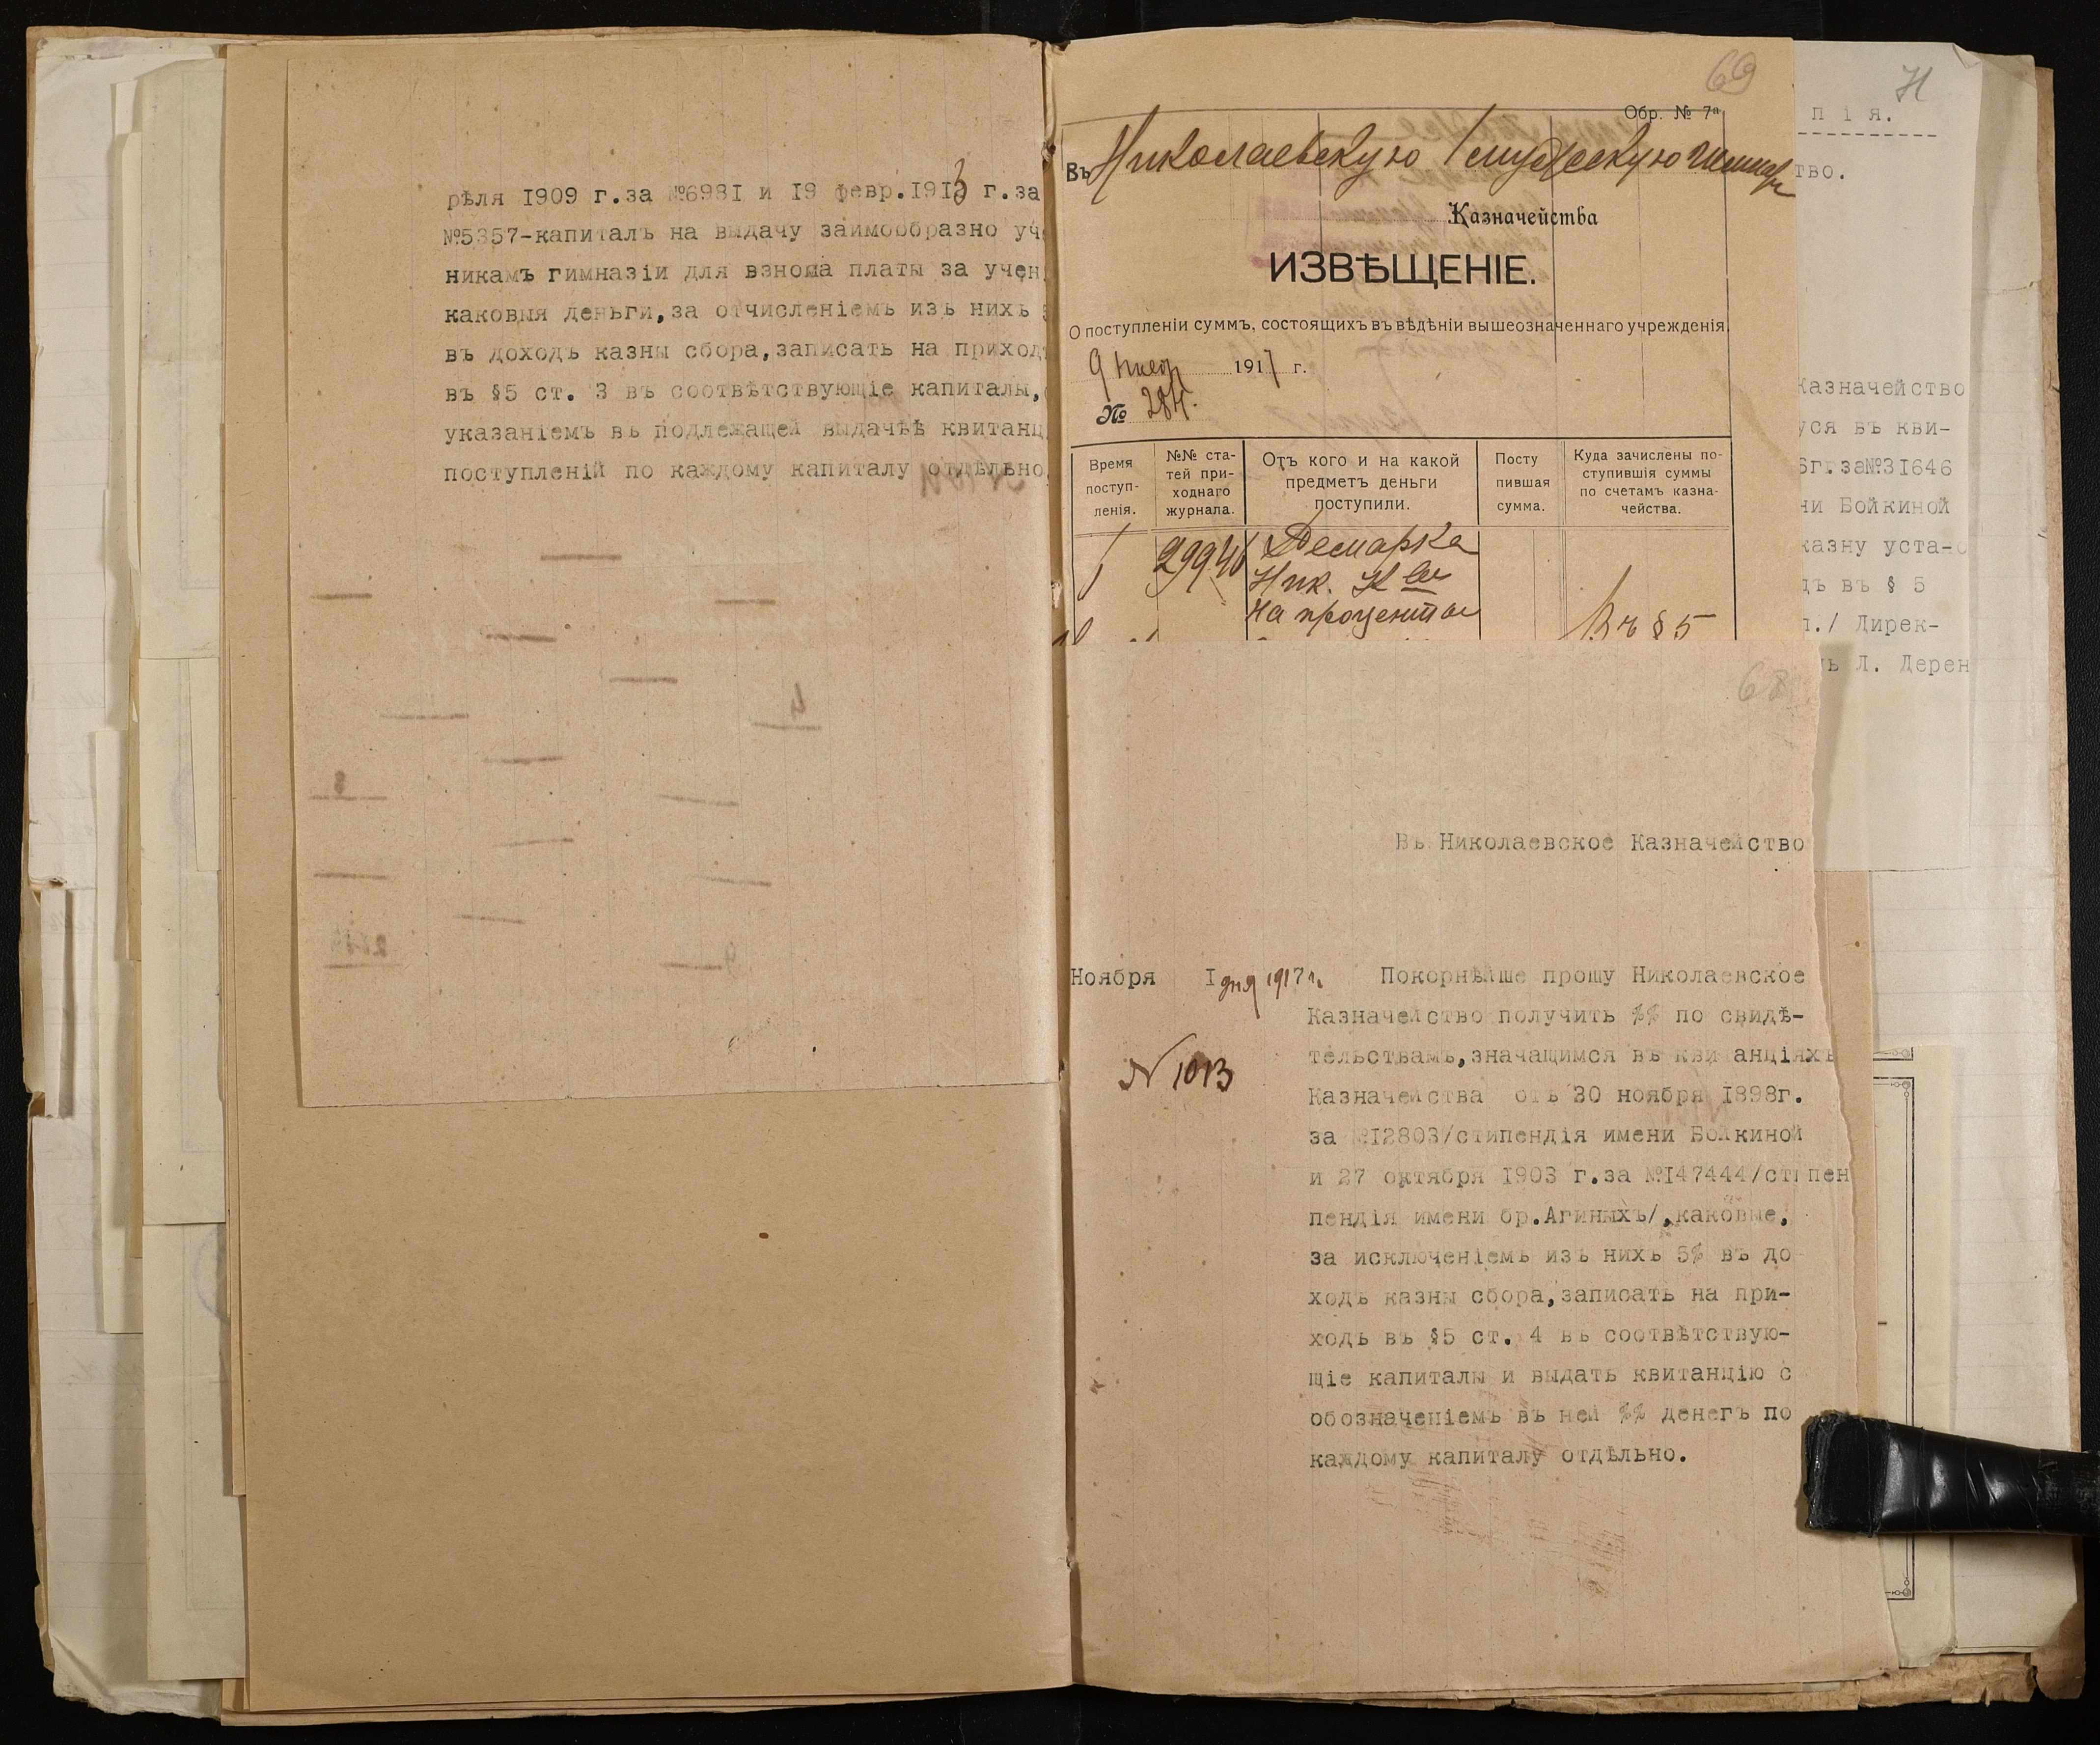 рѣля 1909 г.за №6981 и 19 февр.1913 г.за
№5357-капиталъ на выдачу заимообразно уч
никамъ гимназіи для взноша платы за учен
каковыя деньги,за отчисленіемъ изъ нихъ
въ доходъ казны сбора,записать на приход
въ §5 ст. 3 въ соотвѣтствующіе капиталы,
указаніемъ въ подлежащей выдачѣѣ квитанц
поступленій по каждому капиталу отдѣльно
69
Обр. № 7а
Въ Николаевскую
Казначейства
ИЗВѢЩЕНІЕ.
О поступленіи суммъ, состоящихъ въ вѣдѣніи вышеозначеннаго учрежденія
9 1917 г.
№ 284.
Время поступ- ленія.
№№ ста- тей при- ходнаго журнала.
Отъ кого и на какой предметъ деньги поступили.
Посту пившая сумма.
Куда зачислены по- ступившія суммы по счетамъ казна- чейства.
29940
Ник.
на проценты
Въ § 5
68
Въ Николаевское Казначейство
Ноября I дня 1917 г.
№ 1013
Покорнѣйше прошу Николаевское
Казначейство получить %% по свидѣ-
тельствамъ,значащимся въ квитанціяхъ
Казначейства отъ 30 ноября 1898г.
за №12803/стипендія имени Бойкиной
и 27 октября 1903 г.за №147444/стипен
пендія имени бр.Агиныхъ/,каковые,
за исключеніемъ изъ нихъ 5% въ до
ходъ казны сбора,записать на при-
ходъ въ §5 ст. 4 въ соотвѣтствую-
щіе капиталы и выдать квитанцію с
обозначеніемъ въ ней %% денегъ по
каждому капиталу отдѣльно.
п і я.
тво.
Казначейство
уся въ кви-
6г.за№31646
ни Бойкиной
казну уста-
дъ въ § 5
л./ Дирек-
ь Л. Дерен